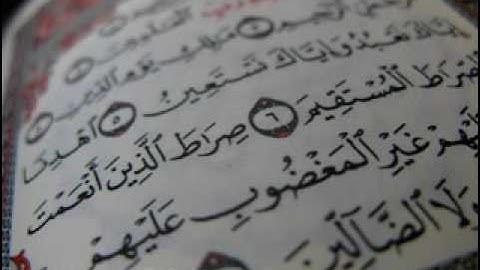 الرَّحِيمِ مَـٰلِكِ يَوْمِ الدِّينِ
إِيَّاكَ نَعْبُدُ وَإِيَّاكَ نَسْتَعِينُ ٥ اهْدِنَا
الصِّرَاطَ الْمُسْتَقِيمَ ٦ صِرَاطَ الَّذِينَ أَنْعَمْتَ
عَلَيْهِمْ غَيْرِ الْمَغْضُوبِ عَلَيْهِمْ
وَلَا الضَّالِّينَ